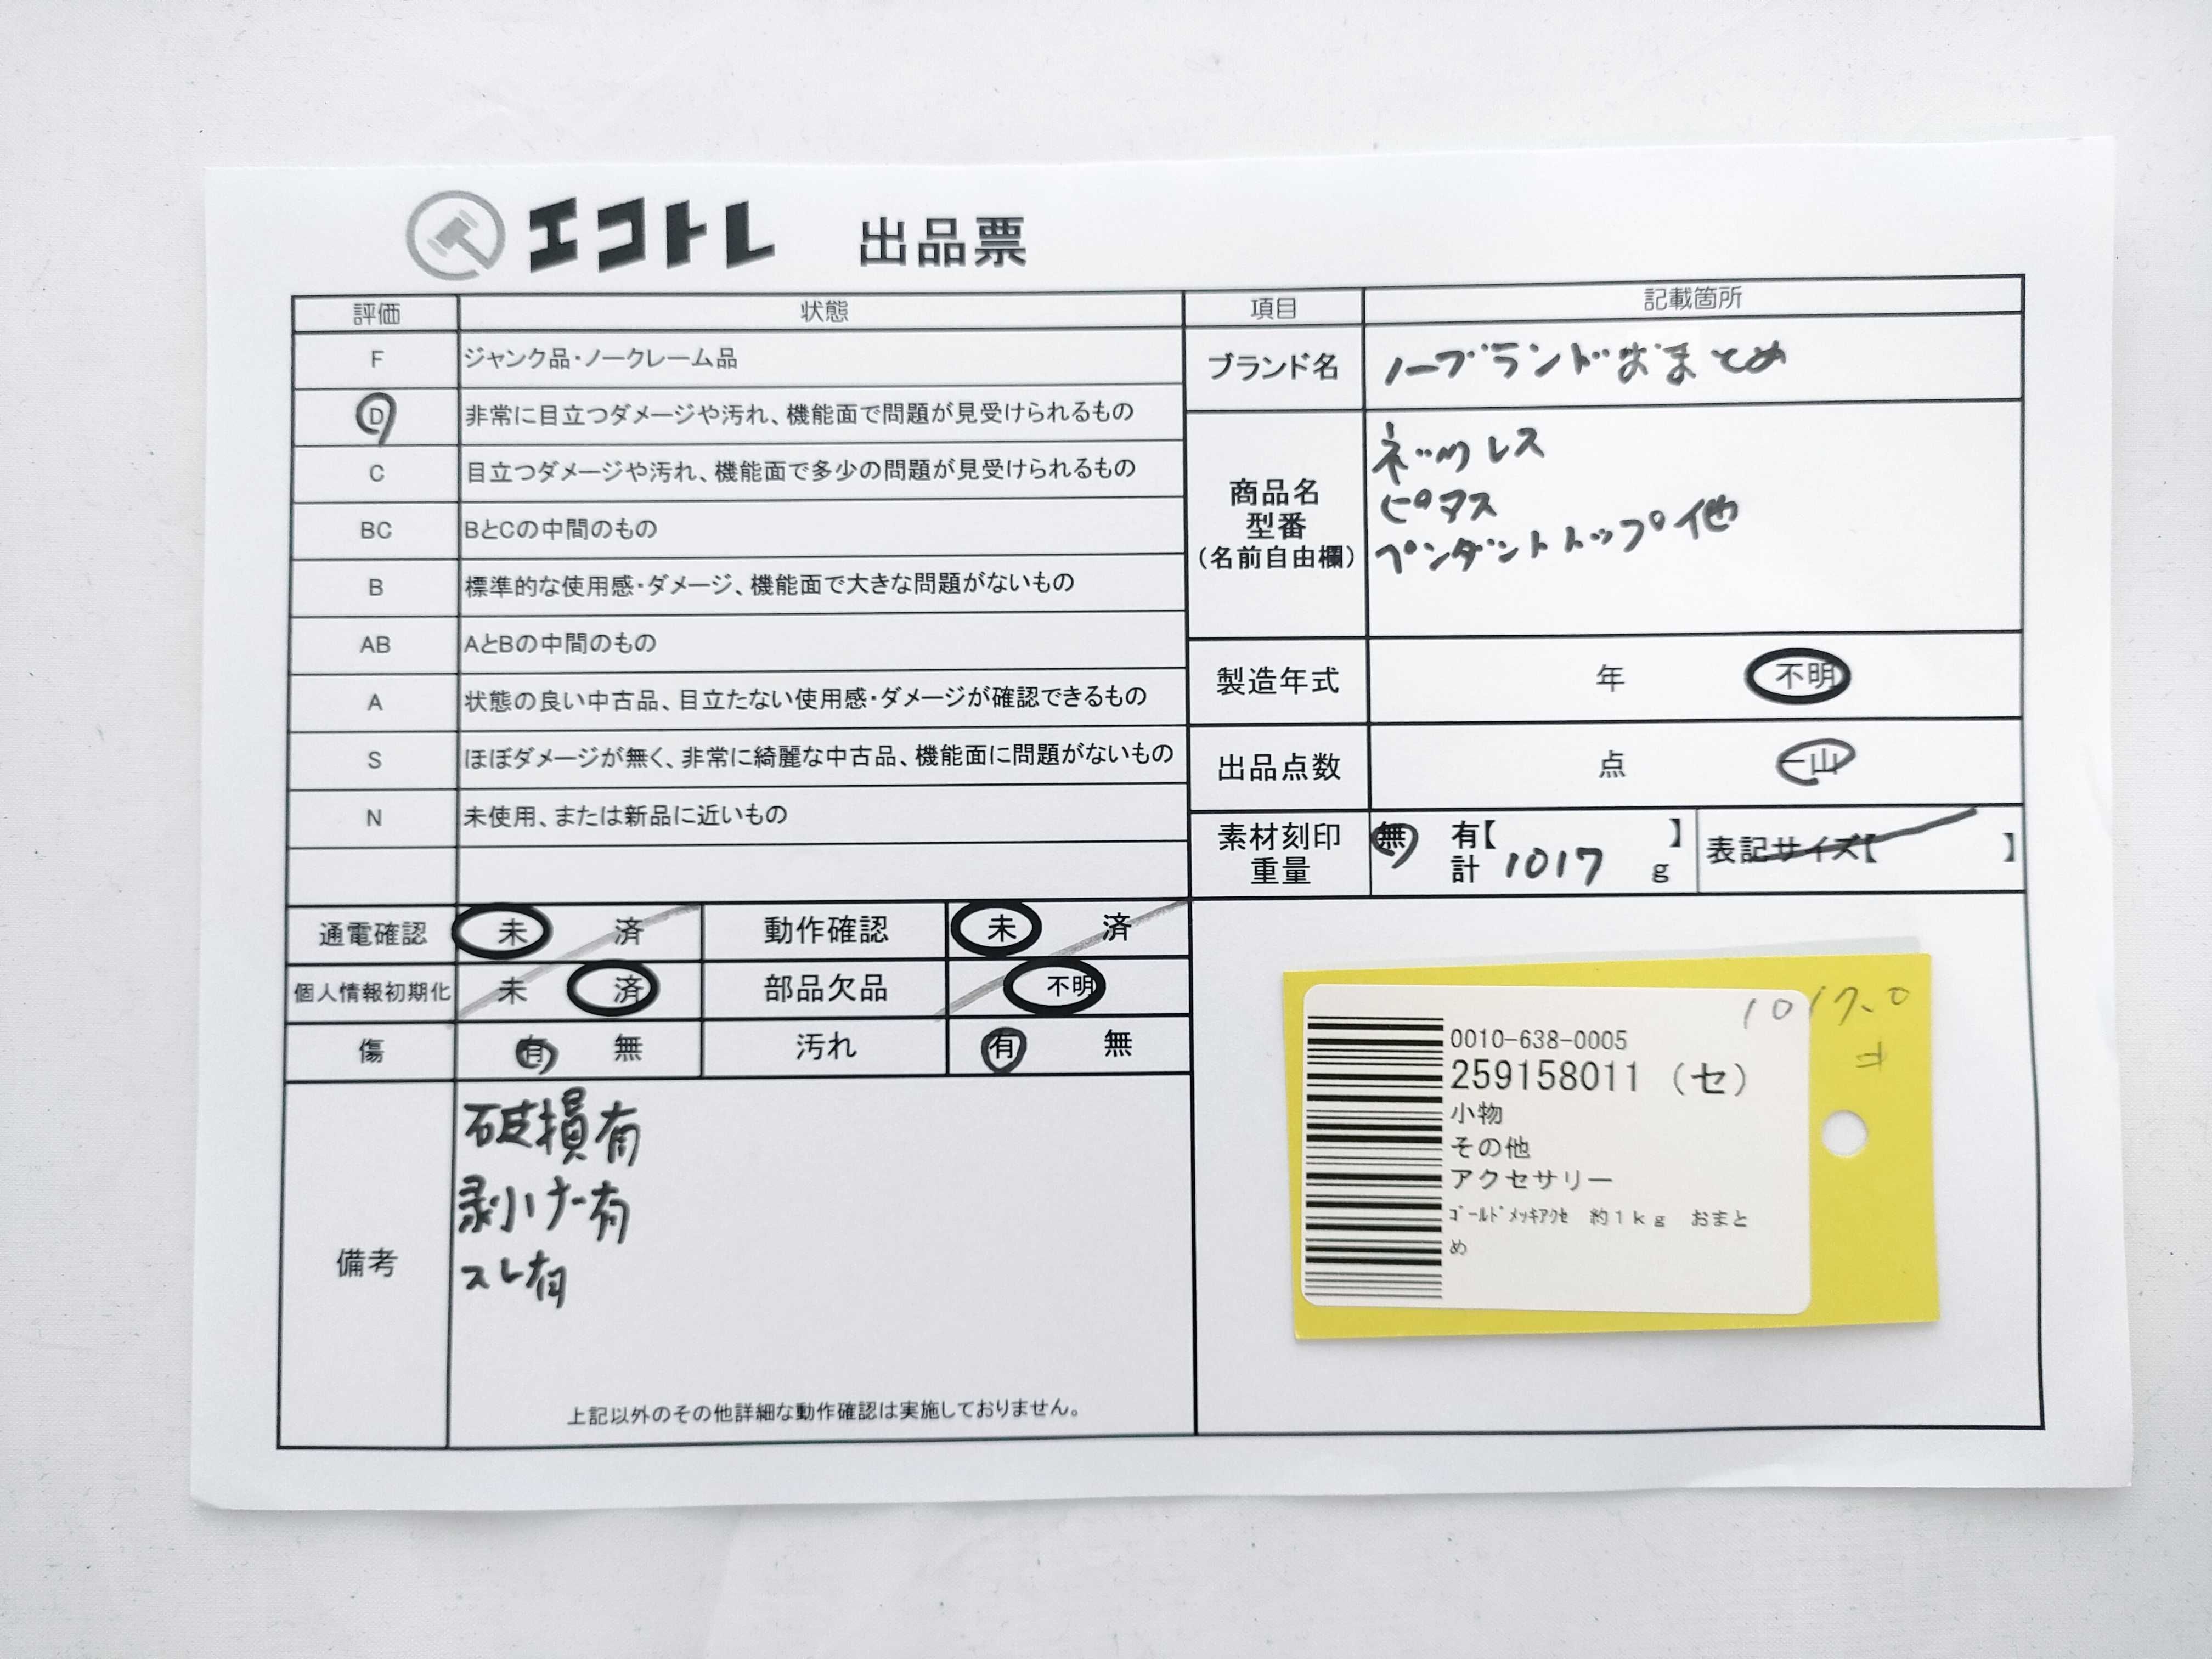 エコトレ 出品票
評価 状態 項目 記載箇所
F ジャンク品・ノークレーム品
D 非常に目立つダメージや汚れ、機能面で問題が見受けられるもの
C 目立つダメージや汚れ、機能面で多少の問題が見受けられるもの
BC BとCの中間のもの
B 標準的な使用感・ダメージ、機能面で大きな問題がないもの
AB AとBの中間のもの
A 状態の良い中古品、目立たない使用感・ダメージが確認できるもの
S ほぼダメージが無く、非常に綺麗な中古品、機能面に問題がないもの
N 未使用、または新品に近いもの
ブランド名 ノーブランドおまとめ
商品名
型番
(名前自由欄)
ネックレス
ピアス
ペンダントトップ他
製造年式 年 不明
出品点数 点 一山
素材刻印 無 有【 】
重量 計 1017 g
表記サイズ【 】
通電確認 未 済 動作確認 未 済
個人情報初期化 未 済 部品欠品 不明
傷 有 無 汚れ 有 無
備考
破損有
剥げ有
スレ有
上記以外のその他詳細な動作確認は実施しておりません。
1017.0
0010-638-0005
259158011 (セ)
小物
その他
アクセサリー
ｺﾞｰﾙﾄﾞﾒｯｷｱｸｾ 約1kg おまと
め